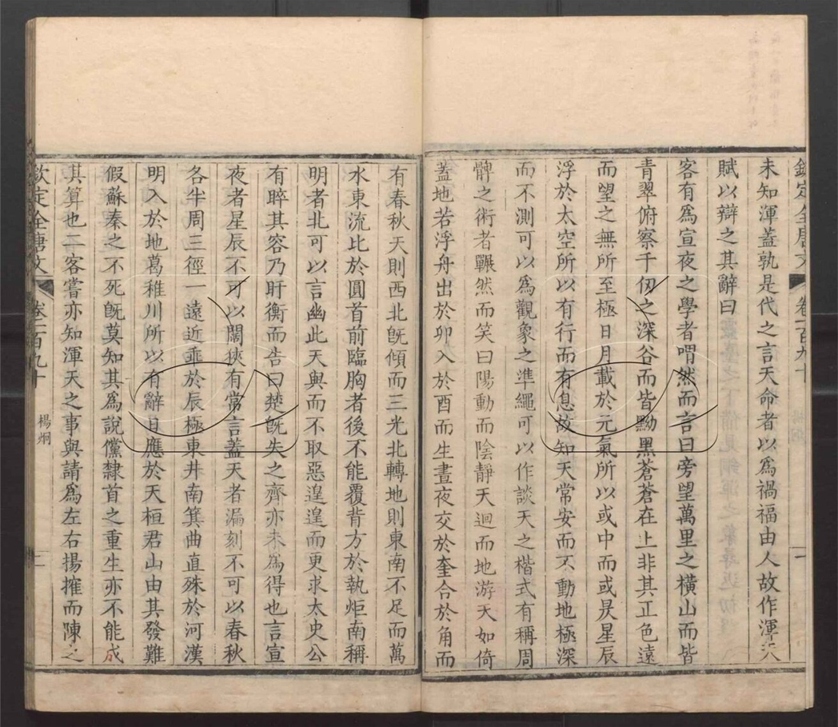 欽定全唐文 卷一百九十 一
未知渾蓋孰是代之言天命者以為禍福由人故作渾天
賦以辯之其辭曰
客有為宣夜之學者喟然而言曰旁望萬里之橫山而皆
青翠俯察千仞之深谷而皆黝黑蒼蒼在上非其正色遠
而望之無所至極日月載於元氣所以或中而或昃星辰
浮於太空所以有行而有息故知天常安而不動地極深
而不測可以為觀象之準繩可以作談天之楷式有稱周
髀之術者囅然而笑曰陽動而陰靜天迴而地游天如倚
蓋地若浮舟出於卯入於酉而生晝夜交於奎合於角而
有春秋天則西北旣傾而三光北轉地則東南不足而萬
水東流比於圓首前臨胸者後不能覆背方於執炬南稱
明者北可以言幽此天與而不取惡遑遑而更求太史公
有睟其容乃盱衡而告曰楚旣失之齊亦未為得也言宣
夜者星辰不可以闊狹有常言蓋天者漏刻不可以春秋
各半周三徑一遠近乖於辰極東井南箕曲直殊於河漢
明入於地葛稚川所以有辭日應於天桓君山由其發難
假蘇秦之不死旣莫知其為說儻隸首之重生亦不能成
其算也二客嘗亦知渾天之事與請為左右揚搉而陳之
欽定全唐文 卷一百九十 楊炯 二